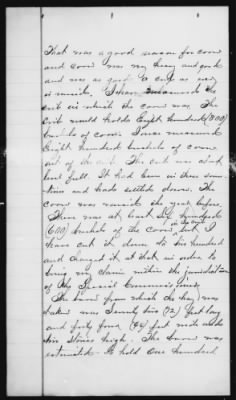 That was a good season for corn
and corn was my heavy and
and was as good a crop as
is raised. I have measured the
crib in which the corn was. The
crib would holds Eight hundred (800)
bushels of corn. I once measured
Eight hundred bushels of corn
out of the crib. The crib was
full. It had been in there some
time and had settled down. The
corn was raised the year before.
There was at least Six hundred
(600) bushels of the corn in the crib but I
have cut it down to Six hundred
and charged it at that in order to
bring my claim within the jurisdiction
of the Special Commissioner.
The barn from which the hay was
taken was Seventy two (72) feet long
and forty four (44) feet wide and
Stories high. The barn was
estimated to hold One hundred